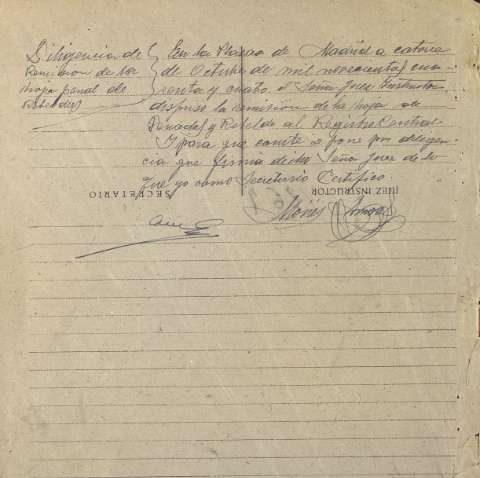 Diligencia de
Remision de la
hoja penal de
Rebeldes
En la Plaza de Madrid a catorce
de Octubre de mil novecientos cua
renta y cuatro el Señor Juez Instructor,
dispuso la remision de la hoja de
Penados y Rebeldes al Registro Central.
Y para que conste se pone por diligen
cia que firma dicho Señor Juez de lo
que yo como Secretario Certifico
SECRETARIO
JUEZ INSTRUCTOR